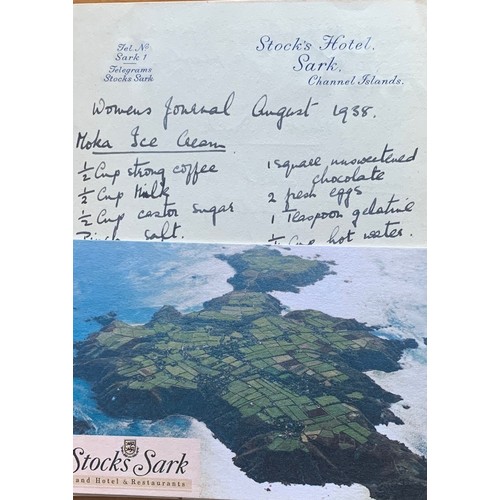 Tel. Nº
Sark 1
Telegrams
Stocks Sark
Stock's Hotel.
Sark,
Channel Islands.
Womens Journal August 1938.
Moka Ice Cream.
½ Cup strong coffee
½ Cup Milk
½ Cup castor sugar
Pinch salt.
1 square unsweetened
chocolate
2 fresh eggs
1 Teaspoon gelatine
Cup hot water.
Stocks Sark
and Hotel & Restaurants